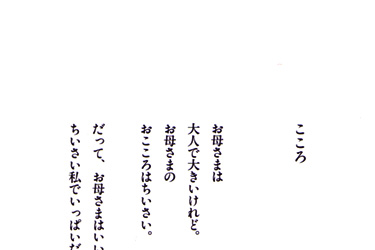 こころ
お母さまは
大人で大きいけれど。
お母さまの
おこころはちいさい。
だって、お母さまはいい
ちいさい私でいっぱいだ